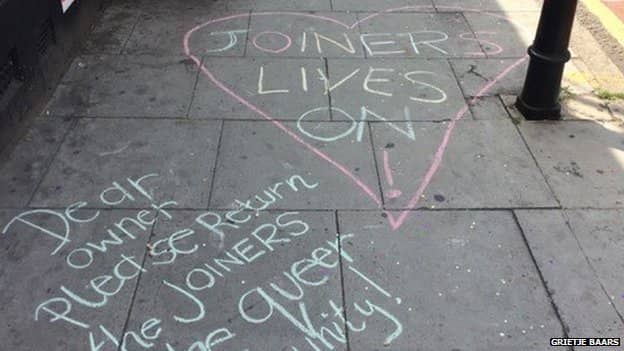 JOINERS
LIVES
ON
!
Dear
owner
Please Return
the JOINERS
queer
GRIETJE BAARS